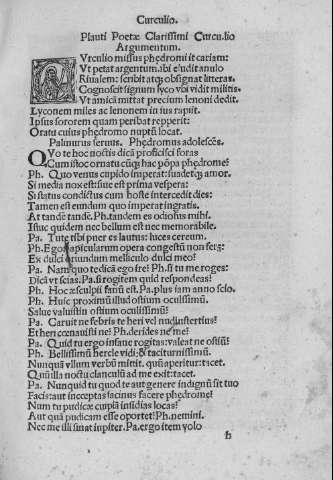 Curculio.
Plauti Poetæ Clarissimi Curcu.lio
Argumentum.
Vrculio missus phędromi it cariam:
Vt petat argentum.ibi eludit anulo
Riualem: scribit atq; obsignat litteras.
Cognoscit signum lyco vbi vidit militis.
Vt amicā mittat precium lenoni dedit.
Lyconem miles ac lenonem in ius rapiit.
Ipsus sororem quam peribat repperit:
Oratu cuius phędromo nuptū locat.
Palinurus seruus. Phędromus adolescēs.
QVo te hoc noctis dicā proficisci foras
Cum istoc ornatu cūq; hac pōpa phędrome?
Ph. Quo venus cupido imperat: suadetq; amor.
Si media nox est: siue est prima vespera:
Si status condictus cum hoste intercedit dies:
Tamen est eundum quo imperat ingratis.
At tandē tandē. Ph. tandem es odiosus mihi.
Istuc quidem nec bellum est nec memorabile.
Pa. Tute tibi puer es lautus: luces cereum.
Ph. Ego apicularum opera congestū non ferā:
Ex dulci oriundum melliculo dulci meo?
Pa. Nam quo te dicā ego ire? Ph. si tu me roges:
Dicā vt scias. Pa. si rogitem quid respondeas?
Ph. Hoc æsculapii fanū est. Pa. plus iam anno scio.
Ph. Huic proximū illud ostium occulissimū.
Salue valuistin ostium occulissimū?
Pa. Caruit ne febris te heri vel nudiustertius?
Et heri cœnauisti ne? Ph. derides ne me?
Pa. Quid tu ergo insane rogitas: valeat ne ostiū?
Ph. Bellissimū hercle vidi: & taciturnissimū.
Nunquā vllum verbū mittit. quū aperitur: tacet.
Quū illa noctu clanculū ad me exit: tacet.
Pa. Nunquid tu quod te aut genere indignū sit tuo
Facis: aut inceptas facinus facere phędrome?
Num tu pudicæ cuipiā insidias locas?
Aut quā pudicam esse oportet? Ph. nemini.
Nec me illi sinat iupiter. Pa. ergo item volo
h